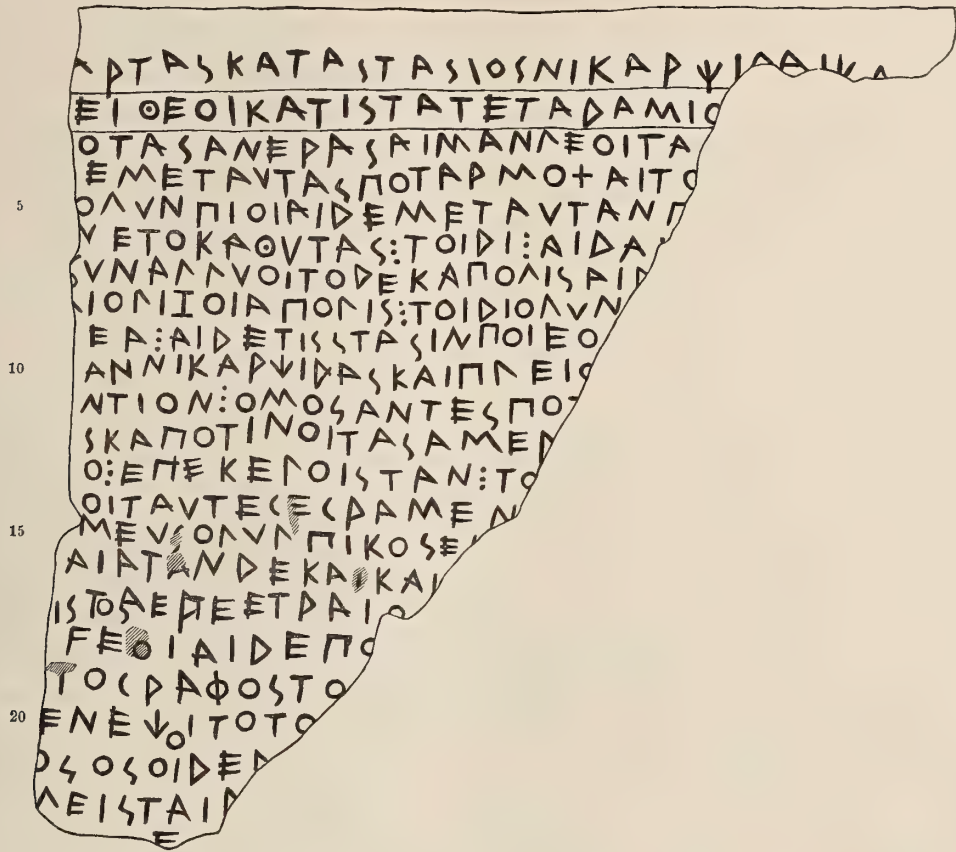 ΑΡΤΑΣΚΑΤΑΣΤΑΣΙΟΣΝΙΚΑΡΨΙΔΑΙΨΑ
ΕΙΘΕΟΙΚΑΤΙΣΤΑΤΕΤΑΔΑΜΙΟ
ΟΤΑΣΑΝΕΡΑΣΑΙΜΑΝΛΕΟΙΤΑ
ΕΜΕΤΑΥΤΑΣΠΟΤΑΡΜΟ+ΑΙΤΟ
5 ΟΛΥΝΠΙΟΙΑΙΔΕΜΕΤΑΥΤΑΝΠ
ΥΕΤΟΚΑΘΥΤΑΣ⋮ΤΟΙΔΙ⋮ΑΙΔΑ
ΥΝΑΛΛΥΟΙΤΟΔΕΚΑΠΟΛΙΣΑΙΔ
ΛΙΟΛΙΖΟΙΑΠΟΛΙΣ⋮ΤΟΙΔΙΟΛΥΝ
ΕΑ⋮ΑΙΔΕΤΙΣΣΤΑΣΙΝΠΟΙΕΟ
10 ΑΝΝΙΚΑΡΨΙΔΑΣΚΑΙΠΛΕΙΟ
ΝΤΙΟΝ⋮ΟΜΟΣΑΝΤΕΣΠΟΤ
ΣΚΑΠΟΤΙΝΟΙΤΑΣΑΜΕΡ
Ο⋮ΕΠΕΚΕΛΟΙΣΤΑΝ⋮ΤΟ
ΟΙΤΑΥΤΕΓΕΓΡΑΜΕΝ
15 ΜΕΥΣΟΛΥΝΠΙΚΟΣΕ
ΑΙΑΤΑΝΔΕΚΑΚΑΙ
ΙΣΤΟΣΑΕΡΠΕΕΤΡΑΙΟ
ϜΕΟΙΑΙΔΕΠΟ
ΤΟΓΡΑΦΟΣΤΟ
20 ΕΝΕΨΟΙΤΟΤΟ
ΟΣΟΣΟΙΔΕΛ
ΛΕΙΣΤΑΙΡ
Ε